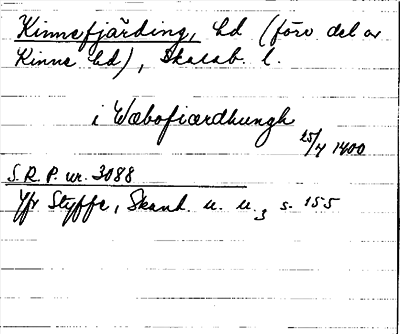 Kinnefjärding, hd (förr del av
Kinne hd), Skarab. l.
i Wæbofiærdhungh
25/4 1400
S.R.P. nr. 3088
Jfr Styffe, Skand. u. u.3 s. 155